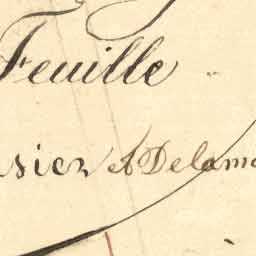 Feuille
sier et Delama